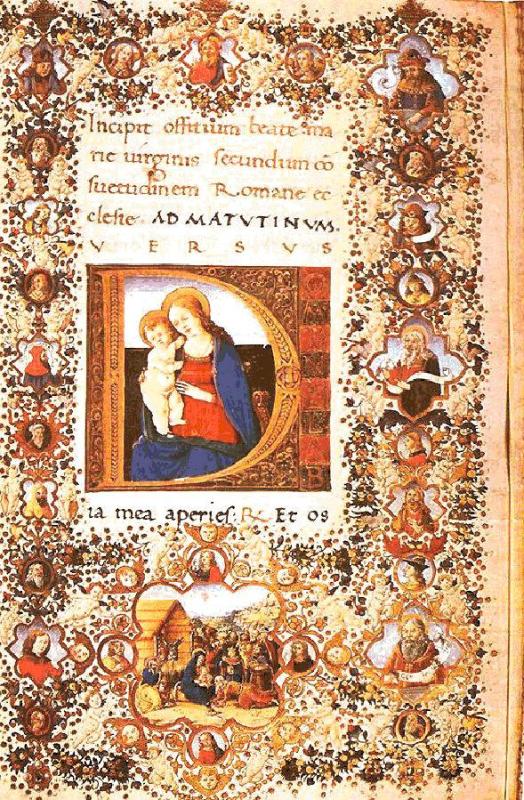 Incipit offitium beate ma
rie virginis secundum cō
suetudinem Romane ec
clesie. AD MATVTINVM.
VERSVS
D
ia mea aperies: R. Et os